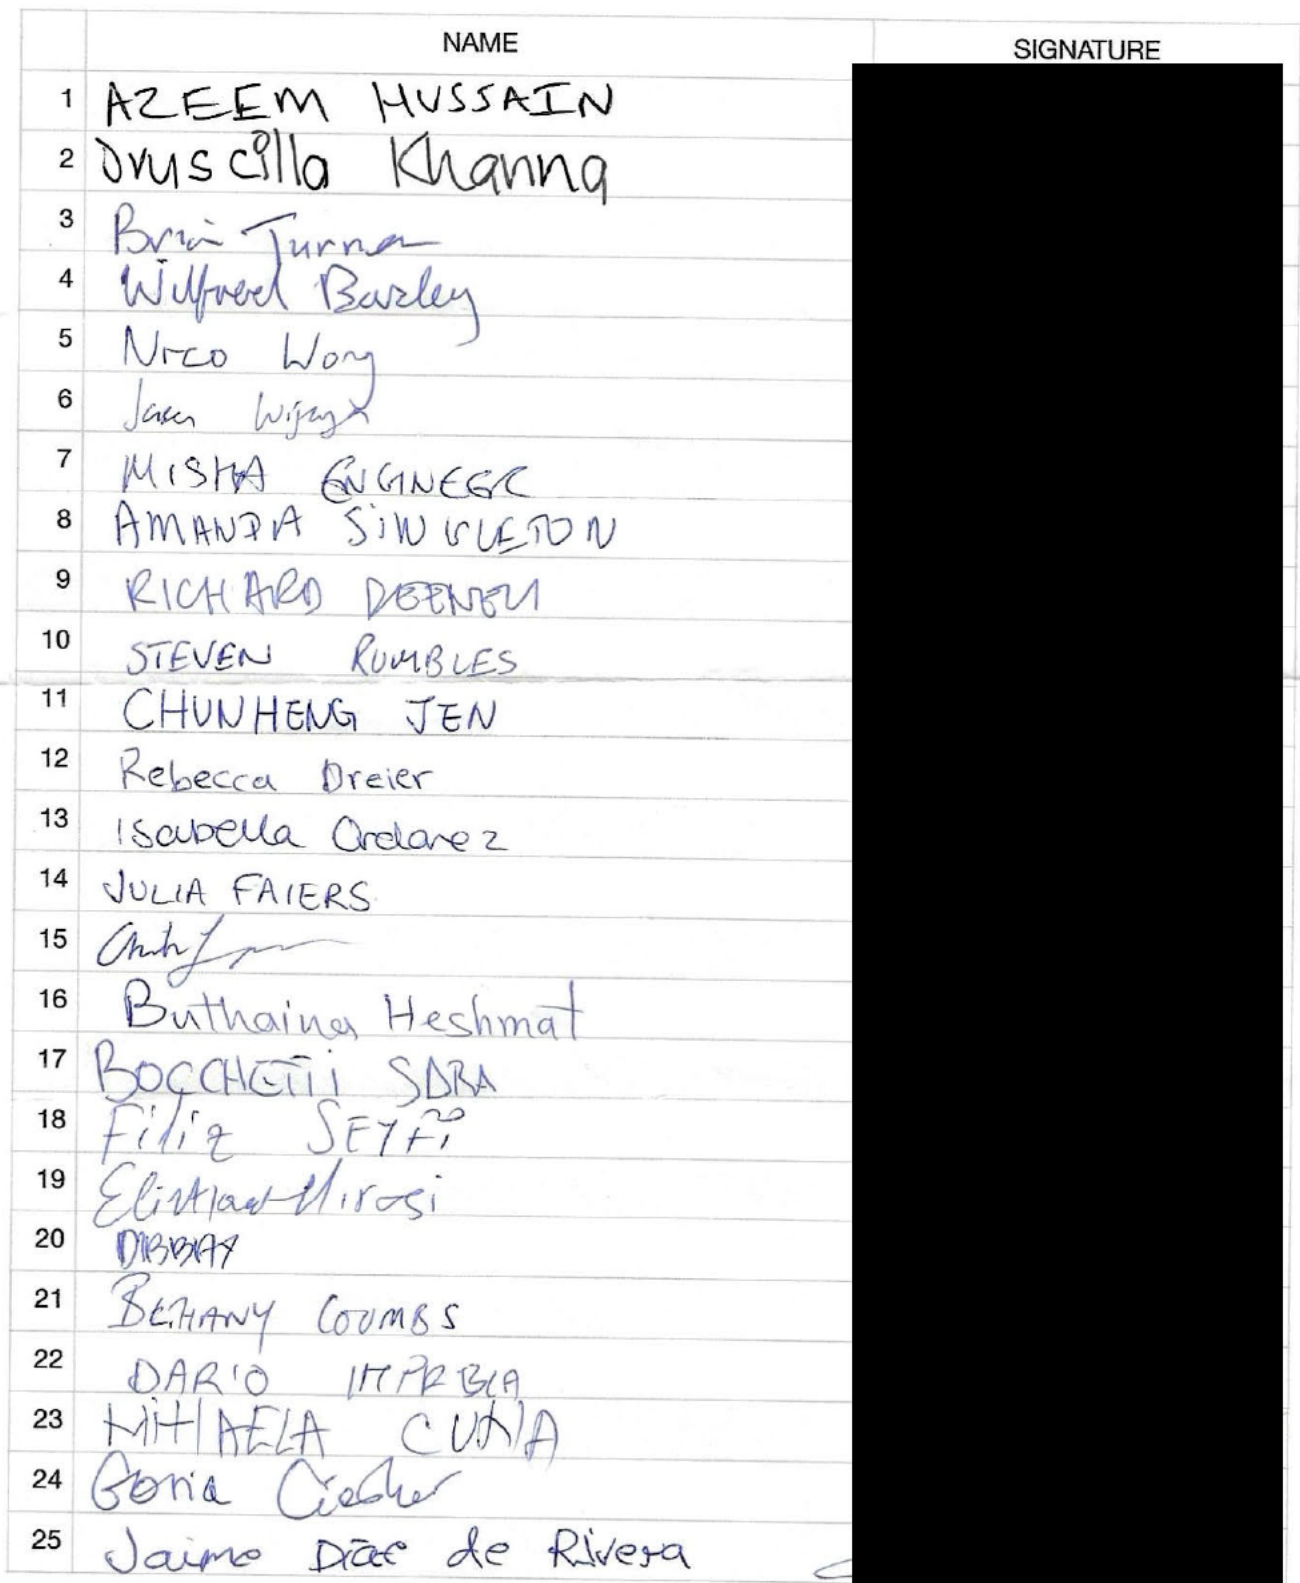 NAME SIGNATURE
1 AZEEM HUSSAIN
2 Druscilla Khanna
3 Brian Turner
4 Wilfred Barley
5 Nico Wong
6 Wijaya
7 MISHA ENGINEER
8 AMANDA SINGLETON
9 RICHARD
10 STEVEN RUMBLES
11 CHUNHENG JEN
12 Rebecca Dreier
13 Isabella Ordonez
14 JULIA FAIERS
15
16 Buthaina Heshmat
17 BOCCHETTI SARA
18 Filiz SEYFi
19
20 DIBBAY
21 BETHANY COOMBS
22 DARIO
23 MIHAELA
24
25 Jaime Díaz de Rivera